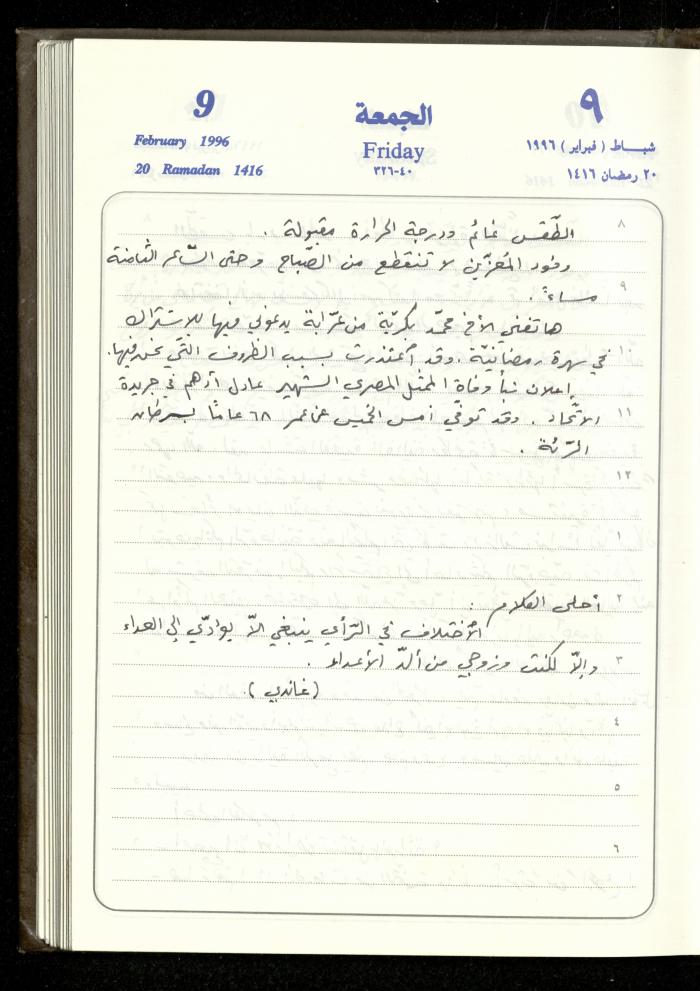 9
February 1996
20 Ramadan 1416
الجمعة
Friday
٣٢٦-٤٠
٩
شباط (فبراير) ١٩٩٦
٢٠ رمضان ١٤١٦
٨ الطّقس غائم ودرجة الحرارة مقبولة .
وفود المُعزّين لا تنقطع من الصّباح وحتى السّاعر الثّامنة
٩ مساءً .
هاتفني الأخ محمّد بكريّة من عرّابة يدعوني فيها للإشتراك
١٠ في سهرة رمضانيّة . وقد أعتذرت بسبب الظروف التّي نحن فيها.
إعلان نبأ وفاة الممثل المصري الشهير عادل أدهم في جريدة
١١ الاتّحاد . وقد توفّي أمس الخميس عن عمر ٦٨ عامًا بسرطان
الرّئة .
١٢
١
٢ أحلى الكلام :
الأختلاف في الرّأي ينبغي الاّ يوادّي إلى العداء
٣ وإلّا لكنت وزوجي من ألدّ الأعداء .
(غاندي ).
٤
٥
٦